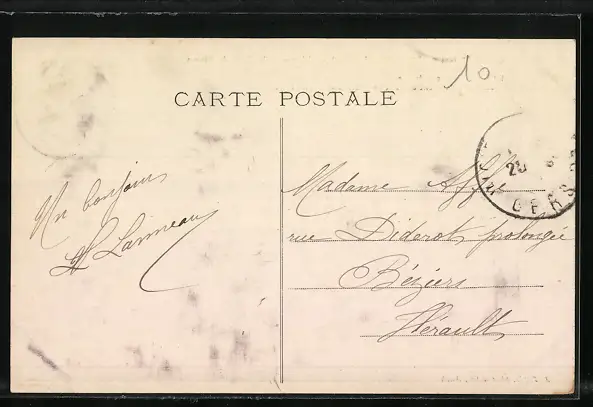 10
CARTE POSTALE
Un bonjour
Lanneau
Madame
rue Diderot prolongée
Béziers
Hérault
25
GERS